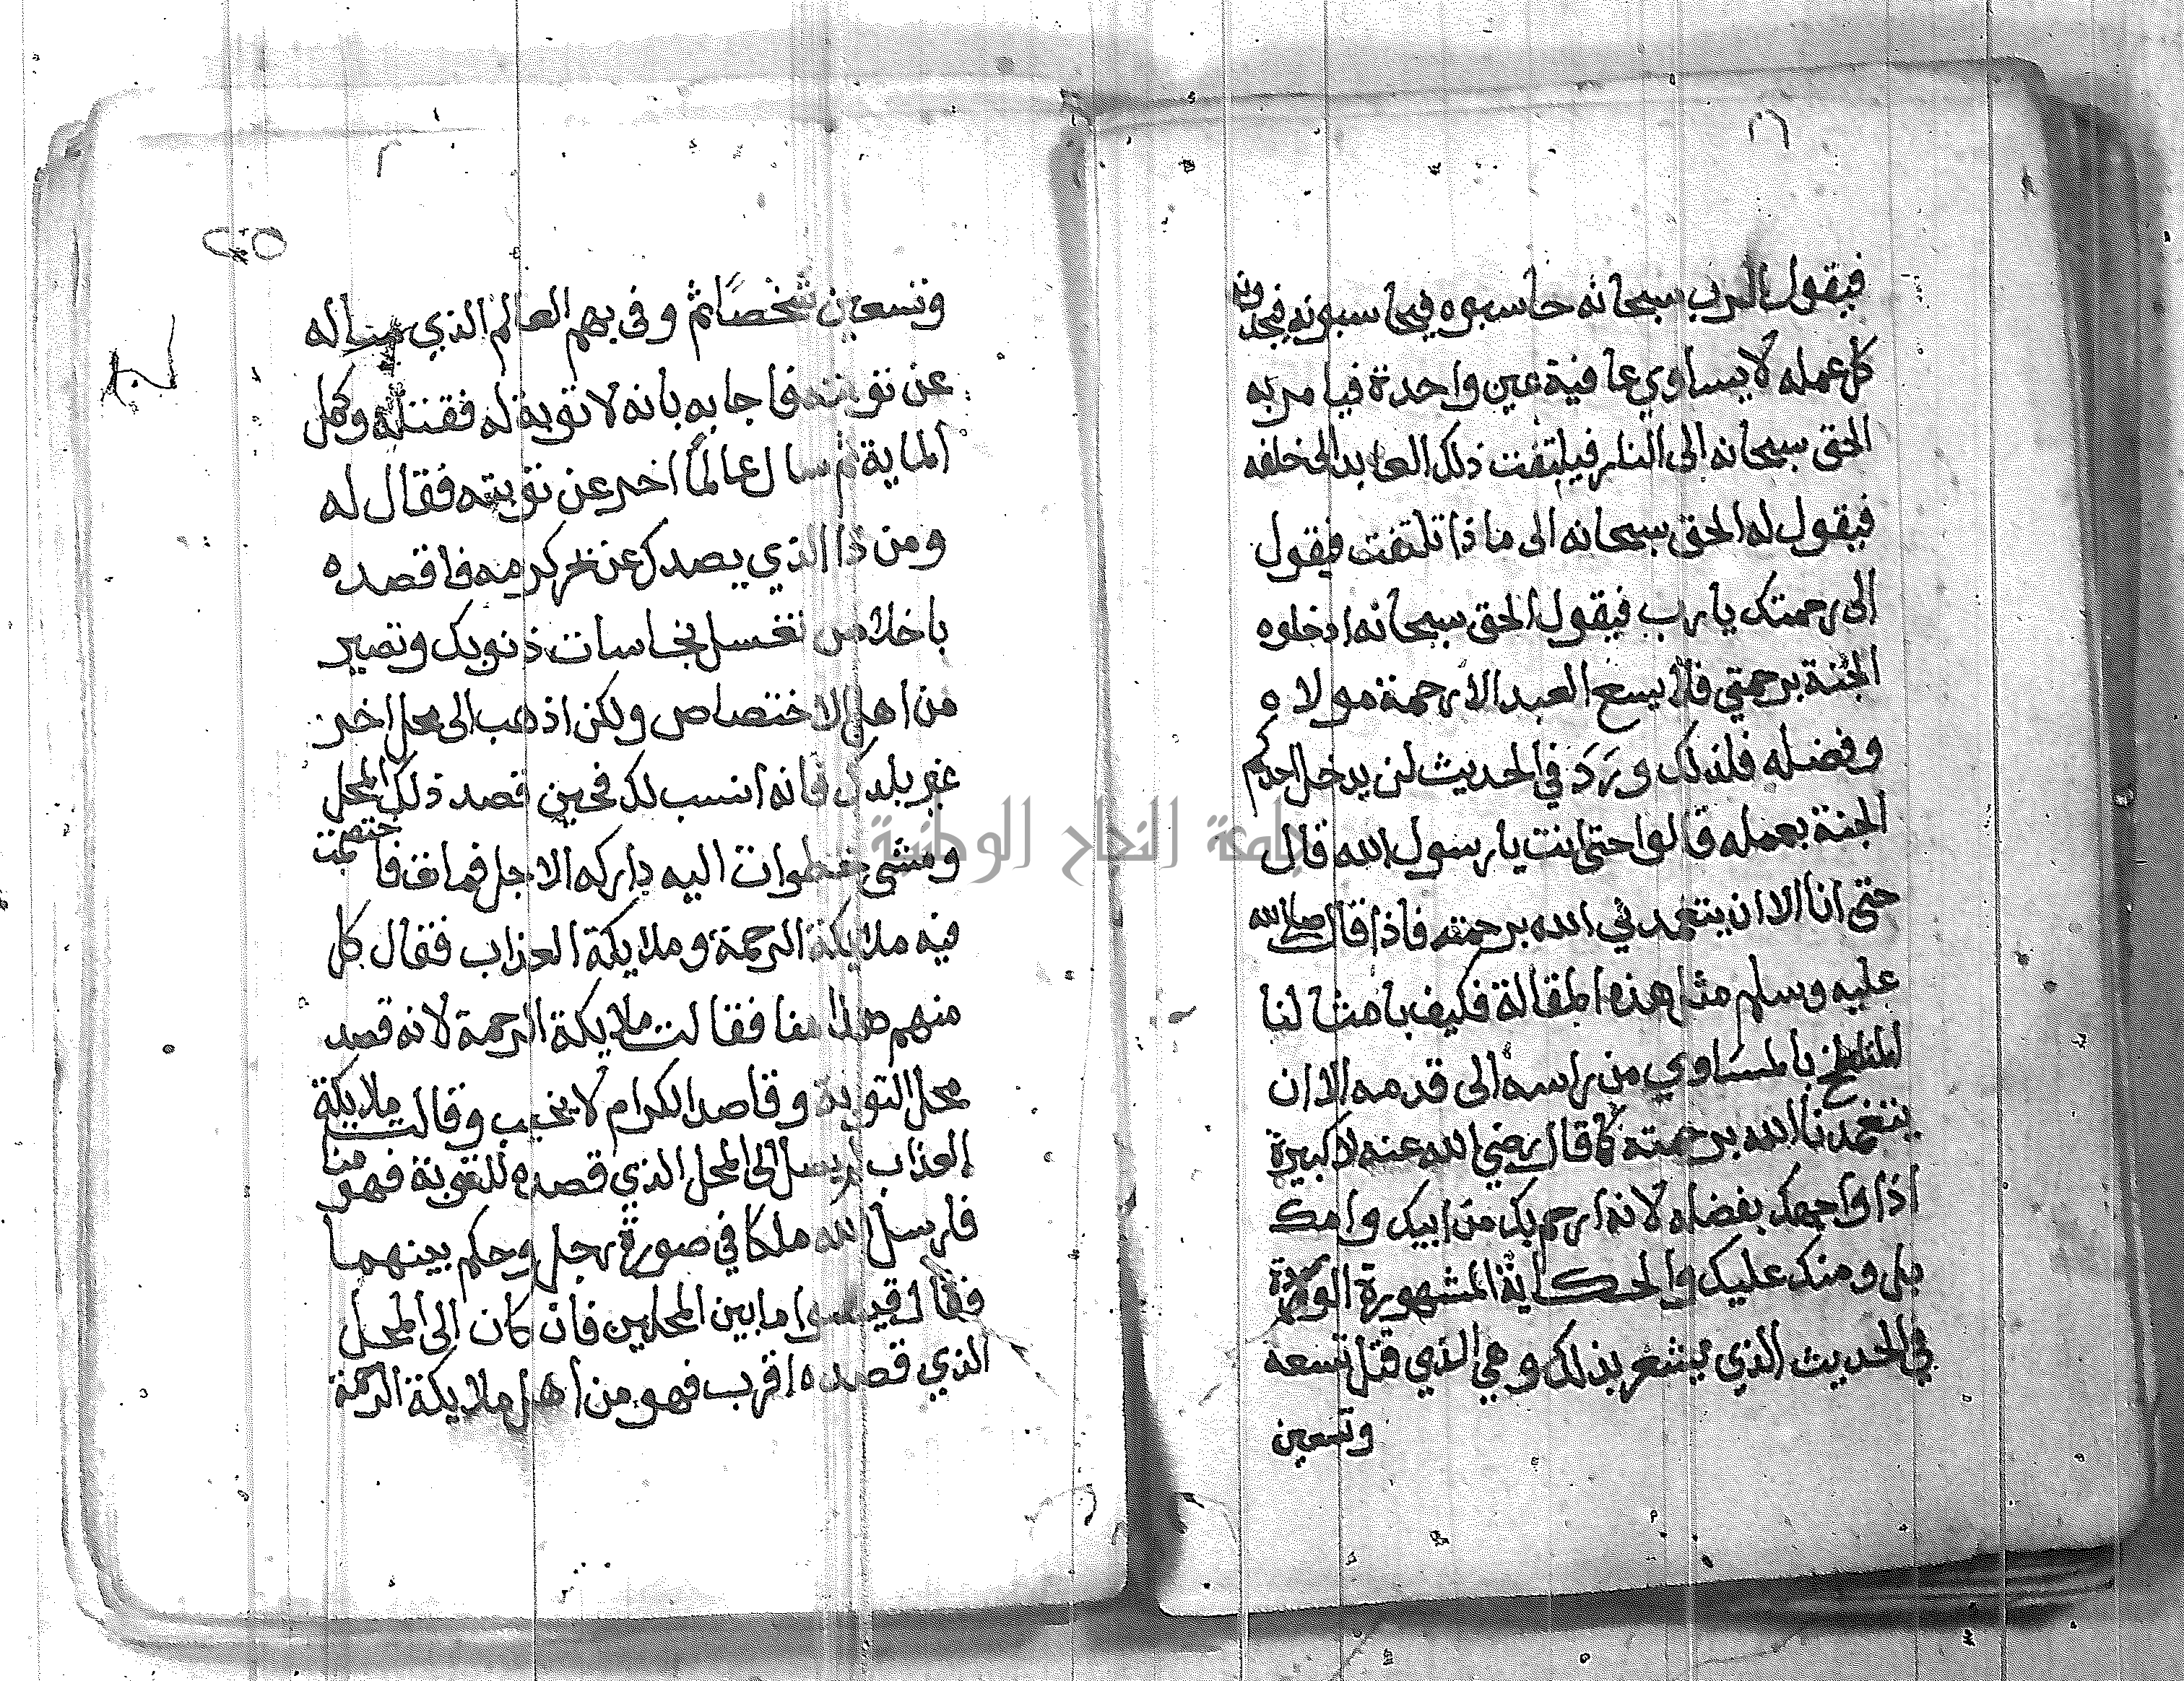 فيقول الرب سبحانه حاسبوه فيحاسبونه فيجدونه
كل عمله لا يساوي عافية عين واحدة فيامر به
الحق سبحانه الى النار فيلتفت ذلك العابد الى خلفه
فيقول له الحق سبحانه الى ماذا تلتفت فيقول
الى رحمتك يا رب فيقول الحق سبحانه ادخلوه
الجنة برحمتي فلا يسع العبد الا رحمة مولاه
وفضله فلذلك ورد في الحديث لن يدخل احدكم
الجنة بعمله قالوا حتى انت يا رسول الله قال
حتى انا الا ان يتغمدني الله برحمته فاذا قال صلى الله
عليه وسلم مثل هذه المقالة فكيف بامثالنا
الملطخ بالمساوي من راسه الى قدمه الا ان
يتغمدنا الله برحمته كما قال رضي الله عنه لا كبيرة
اذا واجهك بفضله لانه ارحم بك من ابيك وامك
بل ومنك عليك والحكاية المشهورة الواردة
في الحديث الذي يشعر بذلك وهي الذي قتل تسعه
وتسعين
وتسعين شخصًا ثم وفى بهم العالم الذي ساله
عن توبته فاجابه بانه لا توبة له فقتله وكمل
الماية ثم سال عالمًا اخر عن توبته فقال له
ومن ذا الذي يصدك عن بحر كرمه فاقصده
باخلاص تغسل نجاسات ذنوبك وتصير
من اهل الاختصاص ولكن اذهب الى محل اخر
غير بلدك فانه انسب لك فحين قصد ذلك المحل
ومشى خطوات اليه داركه الاجل فمات فاختصمت
فيه ملايكة الرحمة وملايكة العذاب فقال كل
منهم هذا منا فقالت ملايكة الرحمة لانه قصد
محل التوبة وقاصد الكرام لا يخيب وقالت ملايكة
العذاب لم يصل الى المحل الذي قصده للتوبة فهو منا
فارسل الله ملكا في صورة رجل وحكم بينهما
فقال قيسوا ما بين المحلين فان كان الى المحل
الذي قصده اقرب فهو من اهل ملايكة الرحمة
جامعة النجاح الوطنية